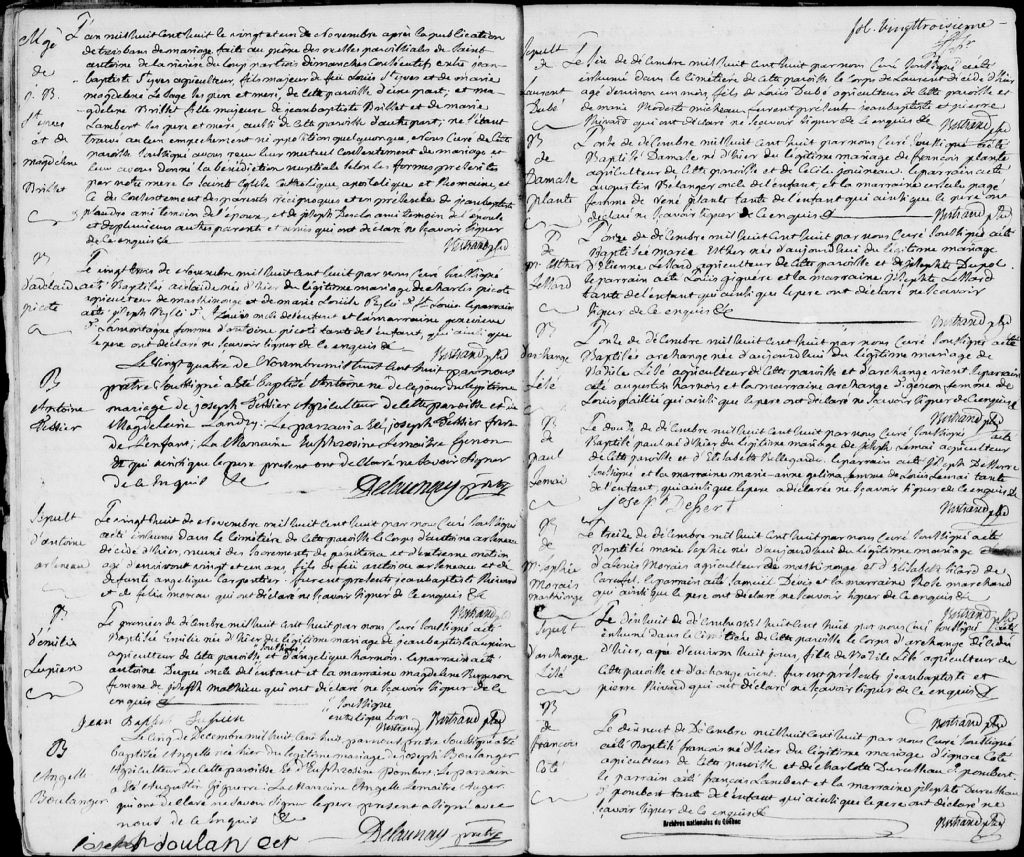 L'an mil huit cent huit le vingt et un de Novembre après la publication
de trois bans de mariage faite au prône des messes paroissiales de Saint
antoine de la rivière du loup par trois dimanches Consécutifs entre jean
baptiste St yves agriculteur, fils majeur de feu Louis St yves et de marie
magdelene Le Sage ses pere et mere, de cette paroisse d'une part; et ma-
gdelene Brillet fille majeure de jeanbaptiste Brillet et de marie
Lambert ses pere et mere, aussi de cette paroisse d'autre part; ne s'étant
trouvé aucun empechement ni opposition quelquonque, Nous Curé de cette
paroisse Soussigné avons reçu leur mutuel Consentement de mariage et
leur avons donné la bénédiction nuptiale selon les formes prescrites
par notre mere la Sainte Eglise Catholique apostolique et Romaine, et
ce du Consentement des parents réciproques et en présence de jeanbaptiste
ami temoin de l'époux, et de joseph ami temoin de l'épouse
et de plusieurs autres parents et amis qui ont déclaré ne sçavoir signer
de ce enquis &
Bertrand ptre
Mge
de
j. B.
St yves
et de
magdelene
Brillet
Le vingt trois de Novembre mil huit cent huit par nous Curé soussigné
a été Baptisée adelaide née d'hier du légitime mariage de charles picote
agriculteur de maskinongé et de marie Louise St Louis le parrain
a été joseph St Louis oncle de l'enfant et la marraine genevieve
Lamontagne femme d'antoine picote tante de l'enfant, qui ainsi que
le pere ont déclaré ne sçavoir signer de ce enquis &
Bertrand ptre
B
d'adelaide
picote
Le vingt quatre de Novembre mil huit cent huit par nous
pretre Soussigné a été baptisé Antoine né de ce jour du légitime
mariage de joseph Agriculteur de cette paroisse et de
Magdeleine Landry: Le parrain a été joseph frere
de L'enfant; La Marraine Euphrosine Lemaitre
qui ainsi que le pere present ont déclaré ne Savoir Signer
de ce Enquis &c
Delaunay prtre
B
Antoine
Sepult
d'antoine
arseneau
Le vingt huit de Novembre mil huit cent huit par nous Curé soussigné
a été inhumé dans le Cimetière de cette paroisse le Corps d'antoine arseneau
décédé d'hier, muni des sacrements de pénitence et d'extreme onction
agé d'environ vingt et un ans, fils de feu antoine arseneau et de
défunte angelique Carpentier. furent présents jeanbaptiste Rivard
et de felix moreau qui ont déclaré ne sçavoir signer de ce enquis &
Bertrand ptre
B
d'emilie
Lupien
Le premier de décembre mil huit cent huit par nous Curé soussigné a été
Baptisée Emilie née d'hier du légitime mariage de jeanbaptiste Lupien
agriculteur de cette paroisse et d'angelique harnois. le parrain a été
antoine Dugré oncle de l'enfant et la marraine magdelene
femme de joseph mathieu qui ont déclaré ne sçavoir signer de ce
enquis &
soussigné
Jean Bapts Lupien
Bertrand ptre
B
Angelle
Boulanger
Le Cinq de Decembre mil huit cent huit par nous pretre Soussigné a été
baptisée Angelle née hier du légitime mariage de joseph Boulanger
Agriculteur de cette paroisse et d'Euphrosine Lambert. Le parrain
a Eté Augustin: La Marraine Angelle Lemaitre Auger.
qui ont déclaré ne Savoir Signer le pere present a Signé avec
nous de ce Enquis &c
Delaunay prtre
fol. vingt troisieme
Sepult
de
Laurent
Dubé
Le six de décembre mil huit cent huit par nous Curé soussigné a été
inhumé dans le Cimetière de cette paroisse le Corps de Laurent décédé d'hier
agé d'environ un mois, fils de Louis Dubé agriculteur de cette paroisse et
de marie modeste micheau. furent présents jeanbaptiste et pierre
Rivard qui ont déclaré ne sçavoir signer de ce enquis &
Bertrand ptre
B
de
Damase
plante
L'onze de décembre mil huit cent huit par nous Curé soussigné a été
Baptisé Damase né d'hier du légitime mariage de françois plante
agriculteur de cette paroisse et de Cecile. le parrain a été
augustin Belanger oncle de l'enfant, et la marraine ursule pagé
femme de rené plante tante de l'enfant qui ainsi que le pere ont
déclaré ne sçavoir signer de ce enquis &
Bertrand ptre
B
de
m. Esther
L'onze de décembre mil huit cent huit par nous Curé soussigné a été
Baptisée marie Esther née d'aujourd'hui du légitime mariage
d'Etienne agriculteur de cette paroisse et de josephte
le parrain a été Louis et la marraine josephte
tante de l'enfant qui ainsi que le pere ont déclaré ne sçavoir
signer de ce enquis &
Bertrand ptre
B
d'archange
L'onze de décembre mil huit cent huit par nous Curé soussigné a été
Baptisée archange née d'aujourd'hui du légitime mariage de
Basile agriculteur de cette paroisse et d'archange vient. le parrain
a été augustin harnois et la marraine archange femme de
Louis qui ainsi que le pere ont déclaré ne sçavoir signer de ce enquis &
Bertrand ptre
B
de
paul
Lemai
Le douze de décembre mil huit cent huit par nous Curé soussigné a été
Baptisé paul né d'hier du légitime mariage de joseph Lemai agriculteur
de cette paroisse et d'Elisabeth. le parrain a été joseph
soussigné et la marraine marie-anne gelina femme de Louis Lemai tante
de l'enfant, qui ainsi que le pere a déclaré ne sçavoir signer de ce enquis &
Bertrand ptre
B
de
m. Sophie
Morais
maskinongé
Le treize de décembre mil huit cent huit par nous Curé soussigné a été
Baptisée marie Sophie née d'aujourd'hui du légitime mariage
d'alexis Morais agriculteur de maskinongé et d'Elisabeth
le parrain a été Samuel et la marraine Rose marchand
qui ainsi que le pere ont déclaré ne sçavoir signer de ce enquis &
Bertrand ptre
Sepult
d'archange
Le dix huit de décembre mil huit cent huit par nous Curé soussigné a été
inhumé dans le Cimetière de cette paroisse le Corps d'archange décédé
d'hier, agé d'environ huit jours, fille de Basile agriculteur de
cette paroisse et d'archange vient. furent présents jeanbaptiste et
pierre Rivard qui ont déclaré ne sçavoir signer de ce enquis &
Bertrand ptre
B
de
françois
Coté
Le dix neuf de Décembre mil huit cent huit par nous Curé soussigné
a été Baptisé françois né d'hier du légitime mariage d'ignace Coté
agriculteur de cette paroisse et de charlotte
le parrain a été françois Lambert et la marraine josephte
tante de l'enfant qui ainsi que le pere ont déclaré ne
sçavoir signer de ce enquis &
Bertrand ptre
Archives nationales du Québec